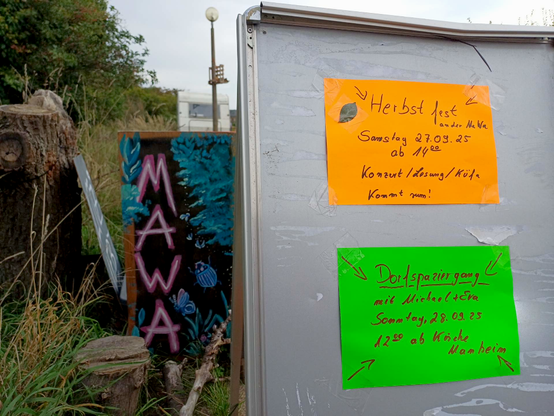 MAWA
Herbstfest
an der MaWa
Samstag 27.09.25
ab 14⁰⁰
Konzert/Lesung/Küfa
Kommt rum!
Dorfspaziergang
mit Michael + Eva
Sonntag, 28.09.25
12⁰⁰ ab Kirche
Manheim